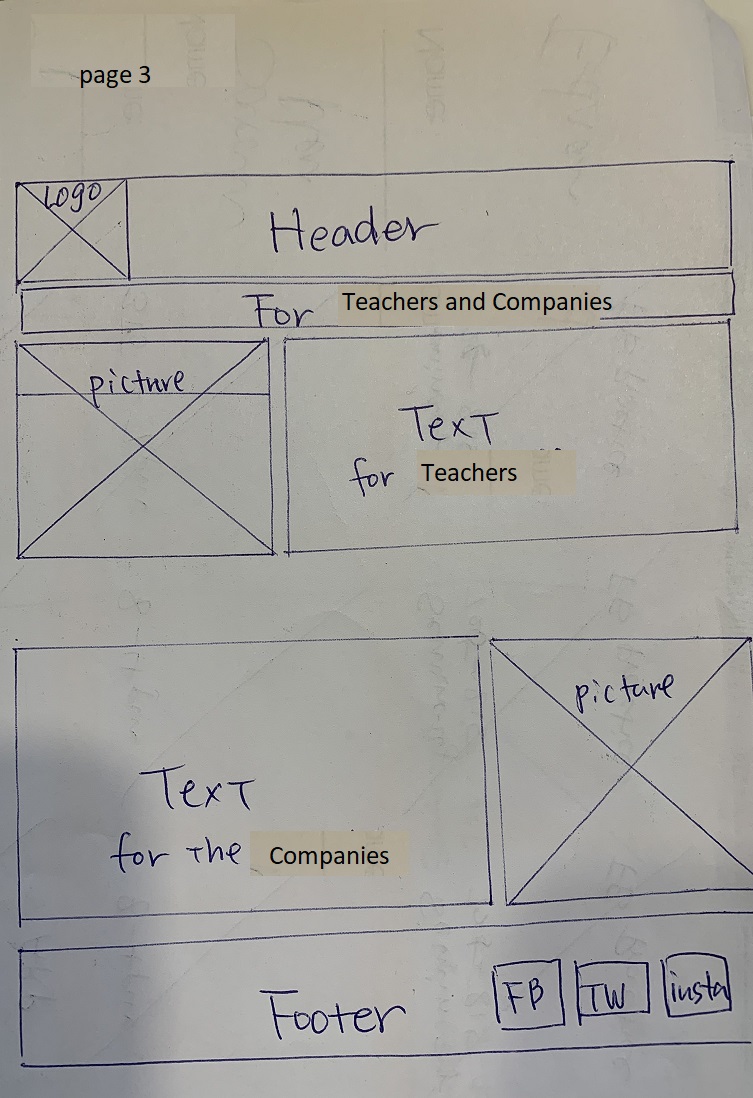 page 3
Logo
Header
For Teachers and Companies
picture
Text
for Teachers
picture
Text
for the Companies
Footer
FB
TW
insta